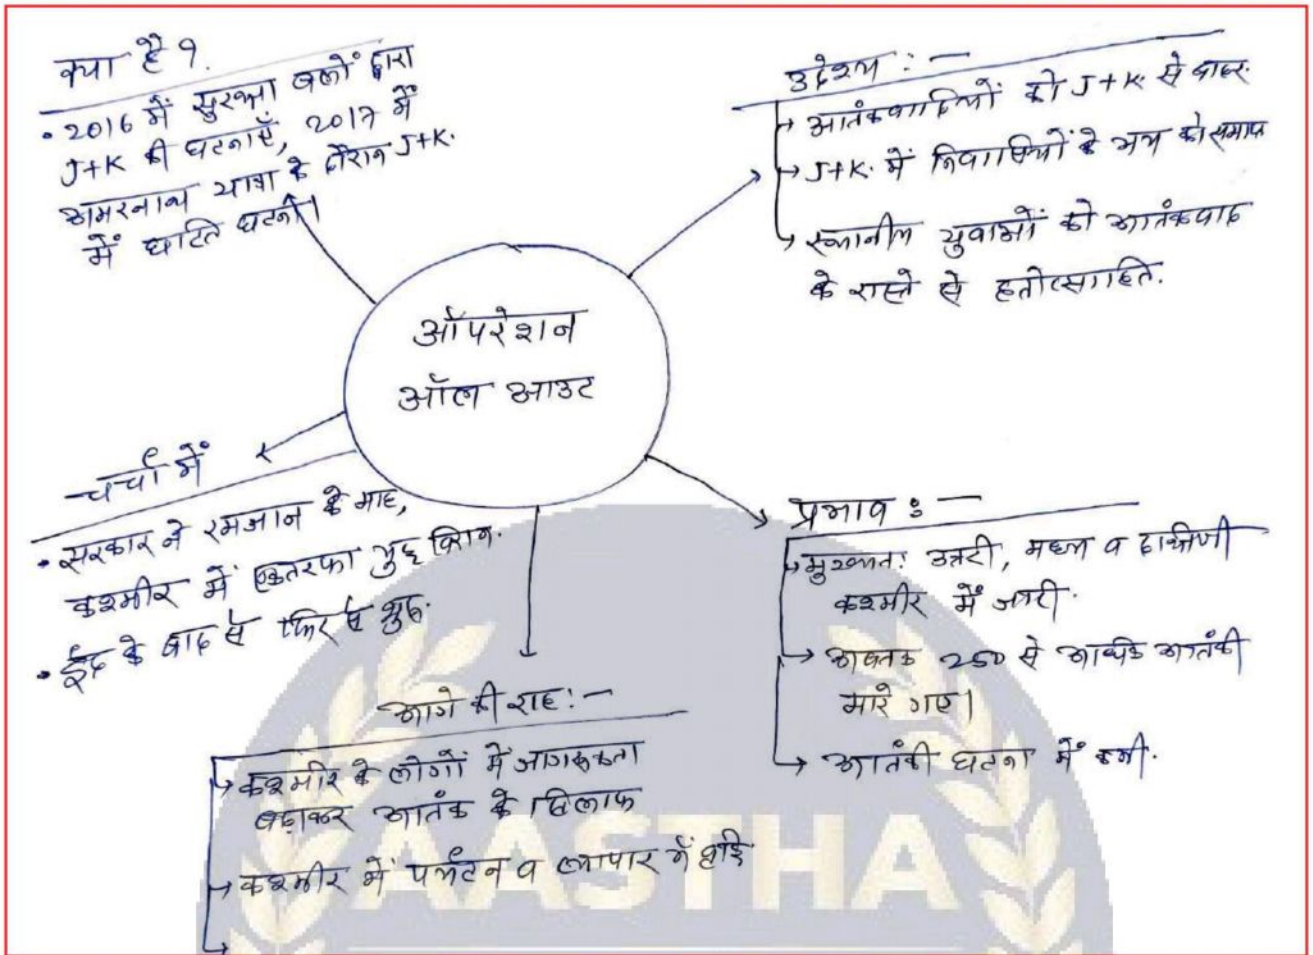 क्या है ?
• 2016 में सुरक्षा बलों द्वारा
J+K की घटनाएँ, 2017 में
अमरनाथ यात्रा के दौरान J+K.
में घटित घटना।
उद्देश्य : —
आतंकवादियों को J+K. से बाहर.
J+K. में निवासियों के भय को समाप्त
स्थानीय युवाओं को आतंकवाद
के रास्ते से हतोत्साहित.
ऑपरेशन
ऑल आउट
चर्चा में
• सरकार ने रमजान के माह,
कश्मीर में एकतरफा युद्ध विराम.
• ईद के बाद से फिर से शुरू.
प्रभाव : —
मुख्यतः उत्तरी, मध्य व दक्षिणी
कश्मीर में जारी.
अबतक 250 से अधिक आतंकी
मारे गए।
आतंकी घटना में कमी.
आगे की राह : —
कश्मीर के लोगों में जागरूकता
बढ़ाकर आतंक के खिलाफ
कश्मीर में पर्यटन व व्यापार में वृद्धि
AASTHA